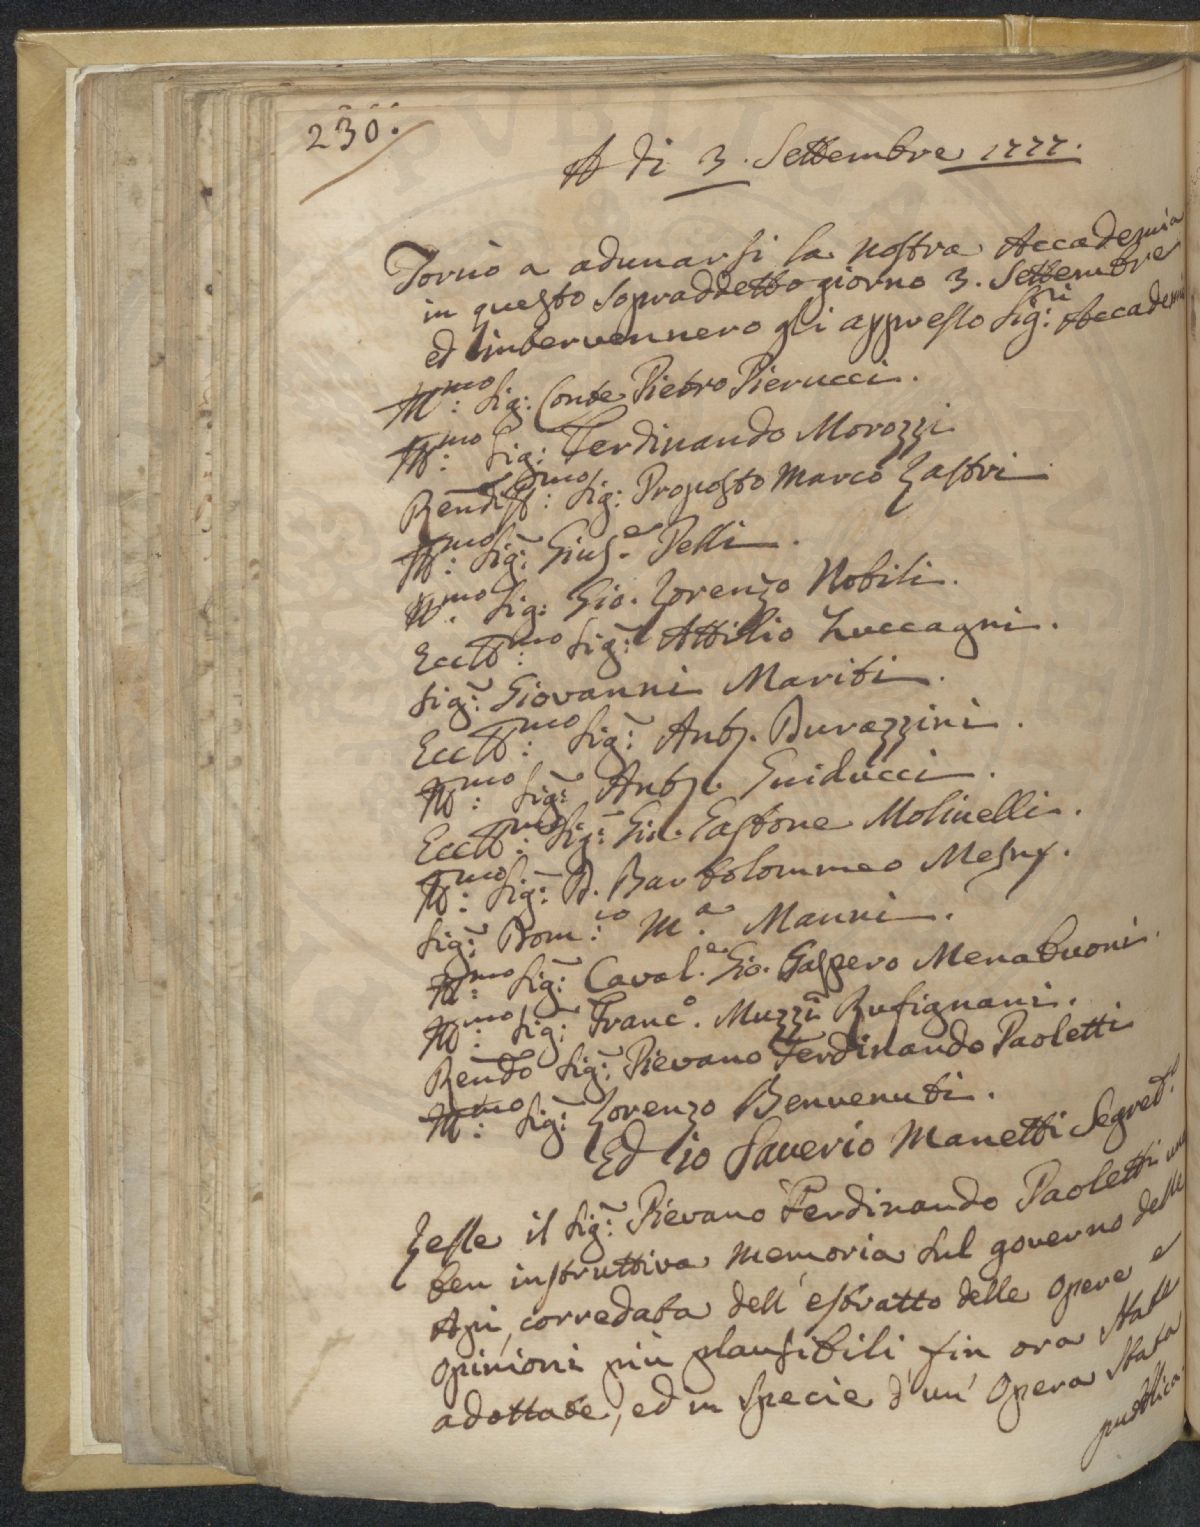 230.
A dì 3. Settembre 1777.
Tornò a adunarsi la nostra Accademia
in questo sopraddetto giorno 3. Settembre
ed intervennero gli appresso Sig:ri Accademi
Ill:mo Sig: Conte Pietro Pierucci.
Ill:mo Sig: Ferdinando Morozzi
Rendiss:mo Sig: Proposto Marco Lastri
Ill:mo Sig: Gius.e Pelli.
Ill:mo Sig: Gio. Lorenzo Nobili.
Eccll:mo Sig: Attilio Zuccagni.
Sig: Giovanni Mariti.
Eccll:mo Sig: Ant. Durazzini.
Ill:mo Sig: Ant. Guiducci.
Eccll:mo Sig: Gio. Gastone Molinelli.
Ill:mo Sig: D. Bartolommeo Mesny.
Sig: Dom:co M.a Manni.
Ill:mo Sig: Caval.e Gio. Gaspero Menabuoni.
Ill:mo Sig: Franc.o Muzzi Bufignani.
Rendo Sig: Pievano Ferdinando Paoletti
Ill:mo Sig: Lorenzo Benvenuti.
Ed io Saverio Manetti Segret.o
Lesse il Sig: Pievano Ferdinando Paoletti una
ben instruttiva memoria sul governo delle
Api, corredata dell'estratto delle opere e
opinioni più plausibili fin ora state
adottate, ed in specie d'un'Opera stata
pubblica